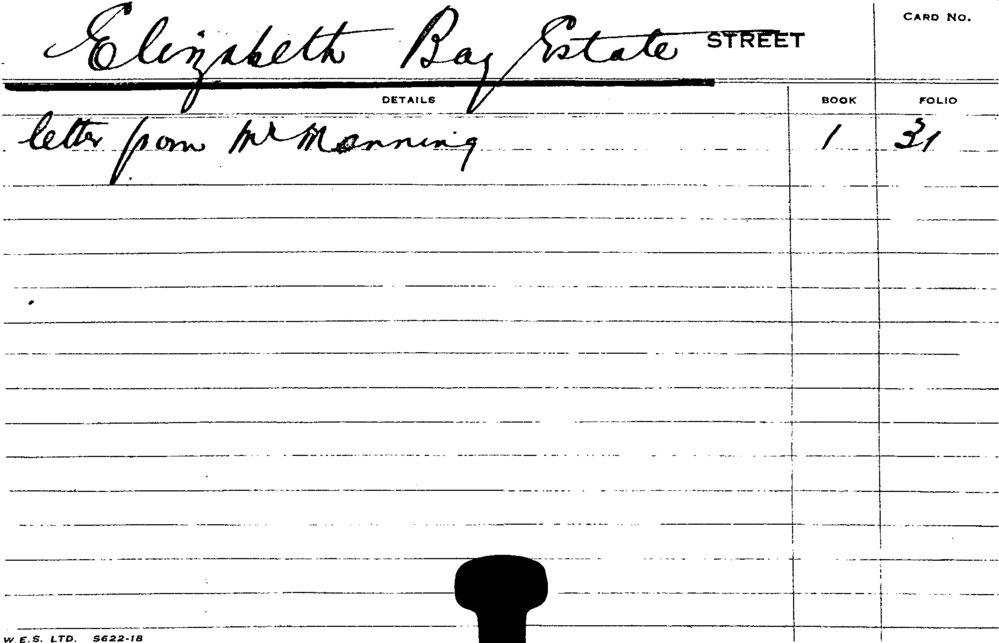 Elizabeth Bay Estate STREET CARD No.
DETAILS BOOK FOLIO
letter from Mr Manning 1 31
W.E.S. LTD. S622-18